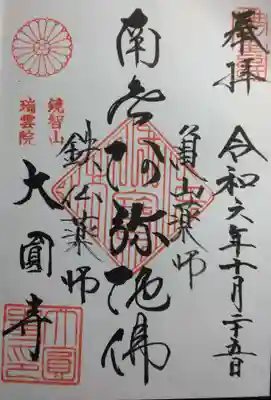 奉拝
令和六年十月二十五日
南無阿弥陀佛
鉄仏薬師
鏡智山
瑞雲院
大圓寺